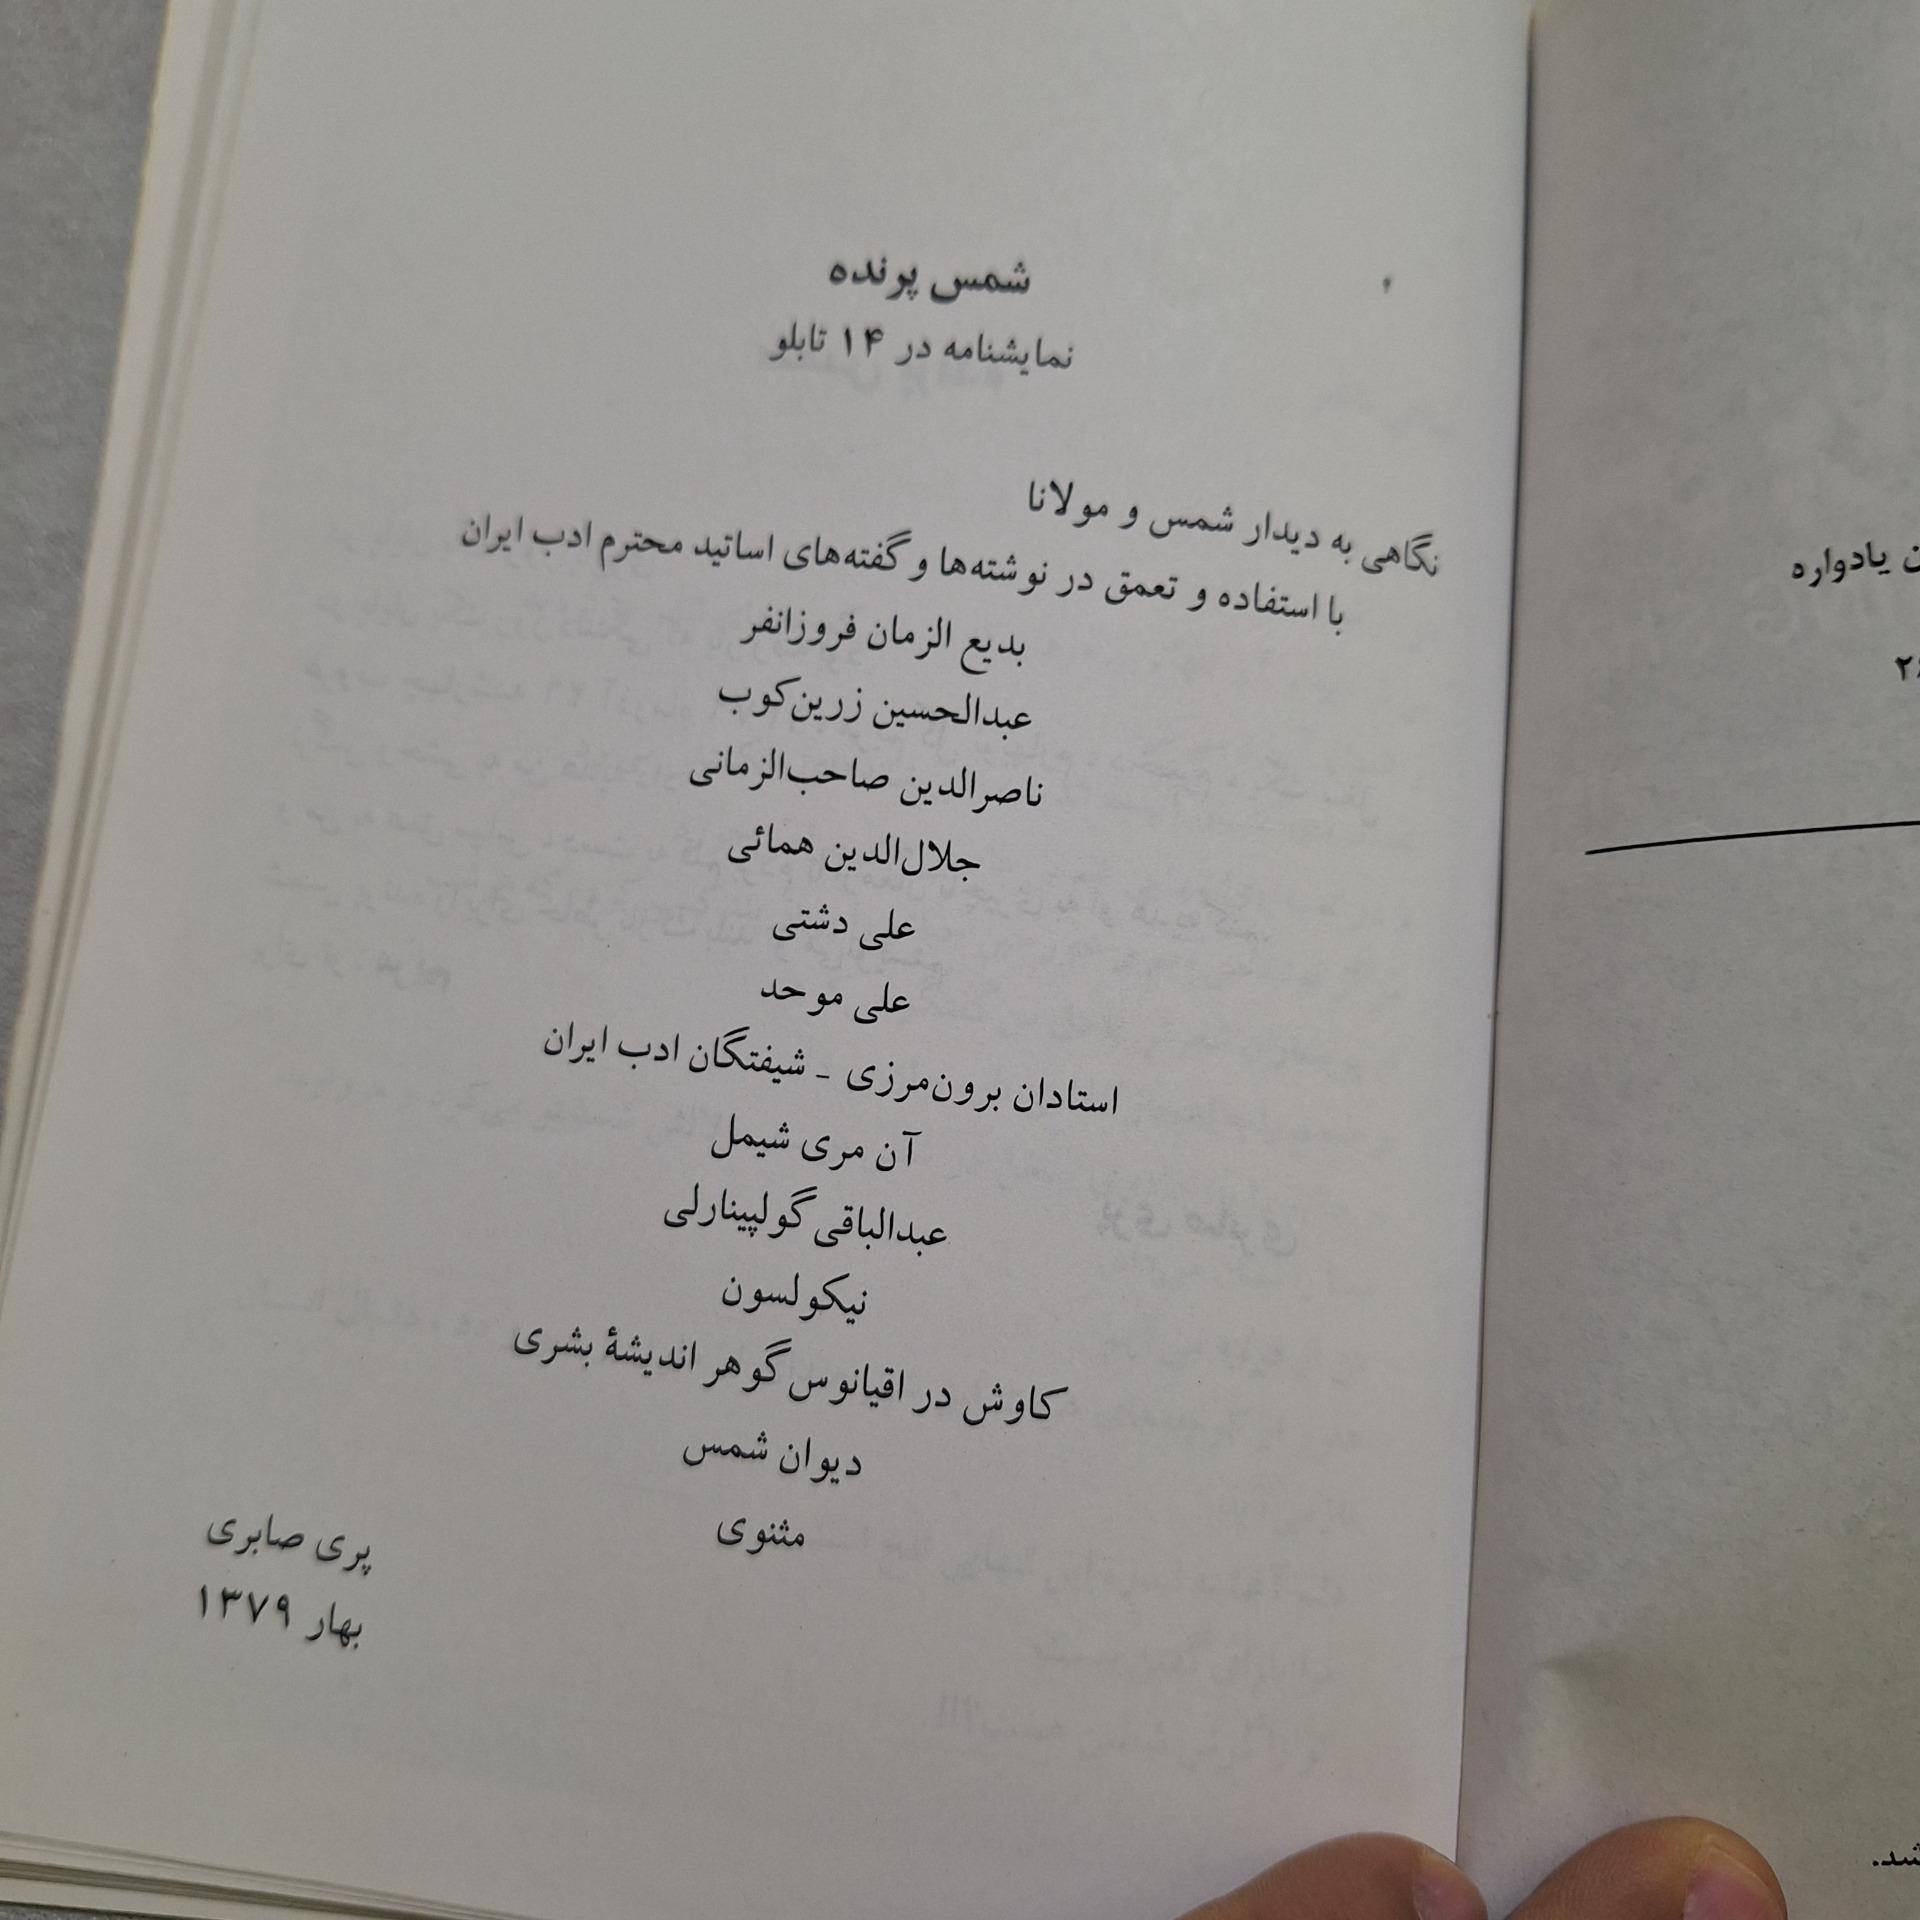 شمس پرنده
نمایشنامه در ۱۴ تابلو
نگاهی به دیدار شمس و مولانا
با استفاده و تعمق در نوشته‌ها و گفته‌های اساتید محترم ادب ایران
بدیع الزمان فروزانفر
عبدالحسین زرین‌کوب
ناصرالدین صاحب‌الزمانی
جلال‌الدین همائی
علی دشتی
علی موحد
استادان برون‌مرزی ـ شیفتگان ادب ایران
آن مری شیمل
عبدالباقی گولپینارلی
نیکولسون
کاوش در اقیانوس گوهر اندیشهٔ بشری
دیوان شمس
مثنوی
پری صابری
بهار ۱۳۷۹
یادواره